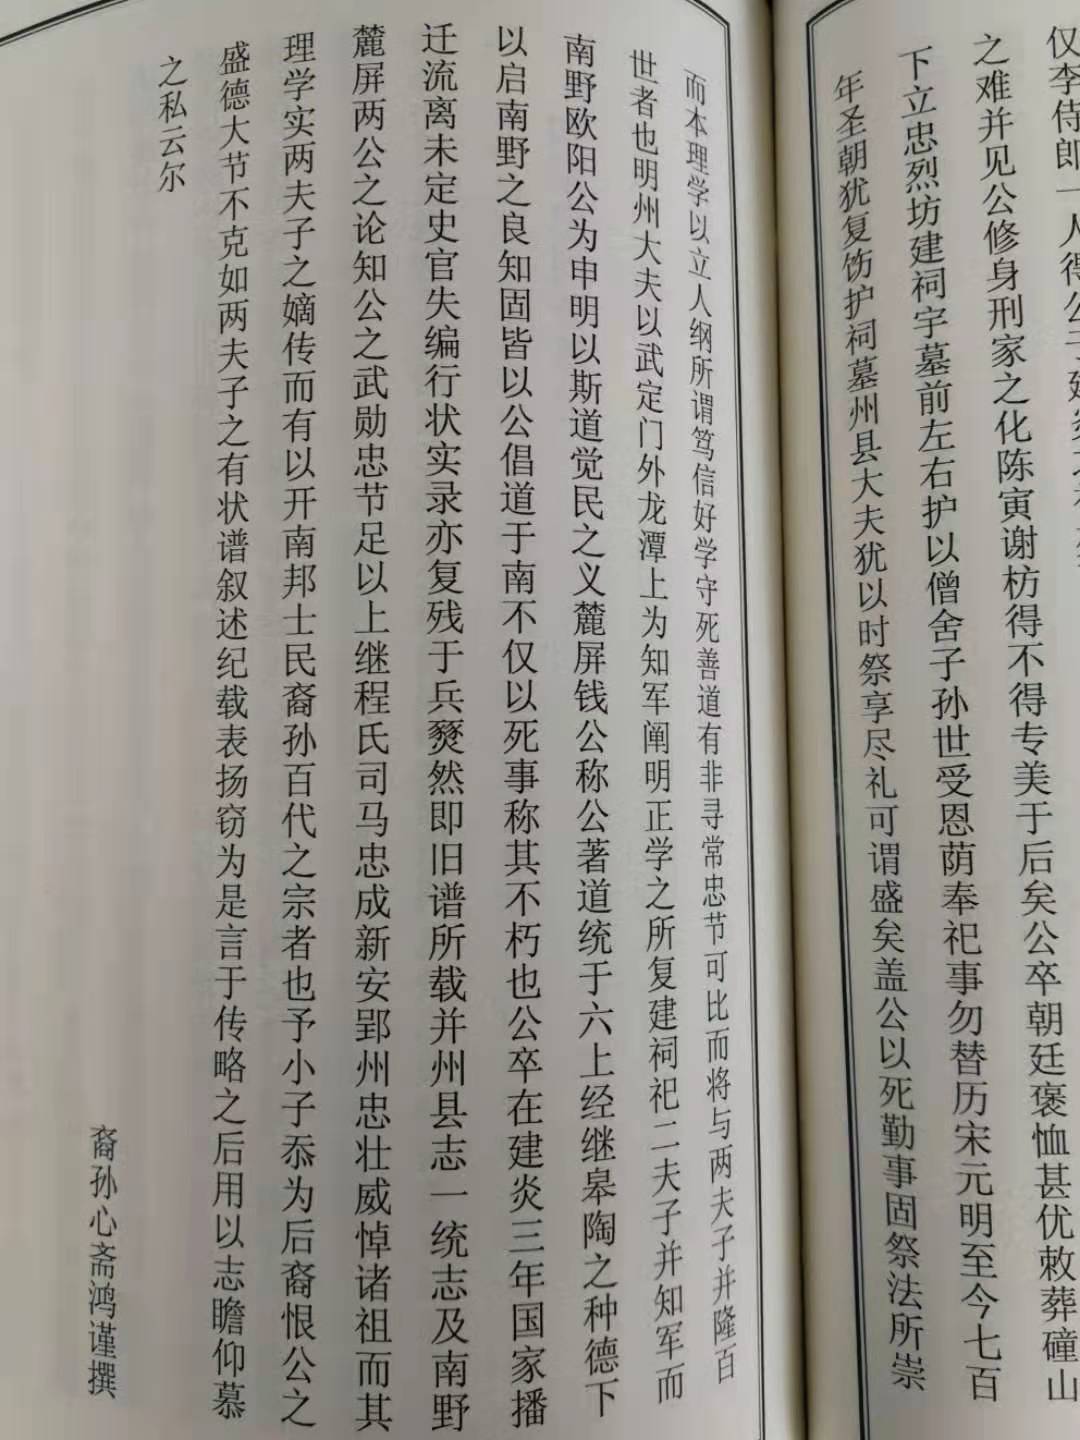 仅李侍郎一人得公
之难并见公修身刑家之化陈寅谢枋得不得专美于后矣公卒朝廷褒恤甚优敕葬磛山
下立忠烈坊建祠宇墓前左右护以僧舍子孙世受恩荫奉祀事勿替历宋元明至今七百
年圣朝犹复饬护祠墓州县大夫犹以时祭享尽礼可谓盛矣盖公以死勤事固祭法所崇
而本理学以立人纲所谓笃信好学守死善道有非寻常忠节可比而将与两夫子并隆百
世者也明州大夫以武定门外龙潭上为知军阐明正学之所复建祠祀二夫子并知军而
南野欧阳公为申明以斯道觉民之义麓屏钱公称公著道统于六上经继皋陶之种德下
以启南野之良知固皆以公倡道于南不仅以死事称其不朽也公卒在建炎三年国家播
迁流离未定史官失编行状实录亦复残于兵燹然即旧谱所载并州县志一统志及南野
麓屏两公之论知公之武勋忠节足以上继程氏司马忠成新安郢州忠壮威悼诸祖而其
理学实两夫子之嫡传而有以开南邦士民裔孙百代之宗者也予小子忝为后裔恨公之
盛德大节不克如两夫子之有状谱叙述纪载表扬窃为是言于传略之后用以志瞻仰慕
之私云尔
裔孙心斋鸿谨撰